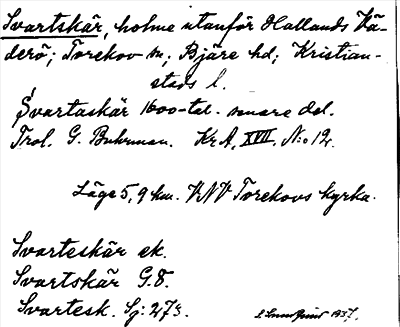 Svartskär, holme utanför Hallands Vä-
derö; Torekov sn; Bjäre hd; Kristian-
stads l.
Svartaskär 1600-tal. senare del.
Trol. G. Buhrman. KrA, XVII, N:o 12.
Läge 5,9 km. VNV Torekovs kyrka.
Svarteskär ek.
Svartskär G.8.
Svartesk. Sj: 273.
1937.